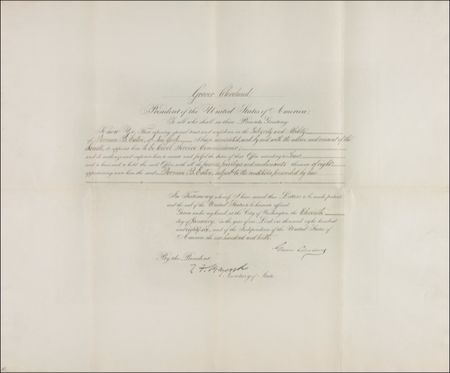 Grover Cleveland
President of the United States of America;
To all who shall see these Presents, Greeting:
Know Ye; That reposing special trust and confidence in the Integrity and Ability
of Dorman B. Eaton, of New York, I have nominated, and by and with the advice and consent of the
Senate, do appoint him to be Civil Service Commissioner;
and do authorize and empower him to execute and fulfil the duties of that Office according to law
and to have and to hold the said Office, with all the powers, privileges and emoluments thereunto of right
appertaining unto him the said Dorman B. Eaton, subject to the conditions prescribed by law.
In Testimony whereof, I have caused these Letters to be made patent
and the seal of the United States to be hereunto affixed.
Given under my hand, at the City of Washington, the Eleventh
day of January, in the year of our Lord one thousand eight hundred
and eighty-six, and of the Independence of the United States of
America the one hundred and tenth.
Grover Cleveland
By the President:
T. F. Bayard
Secretary of State.